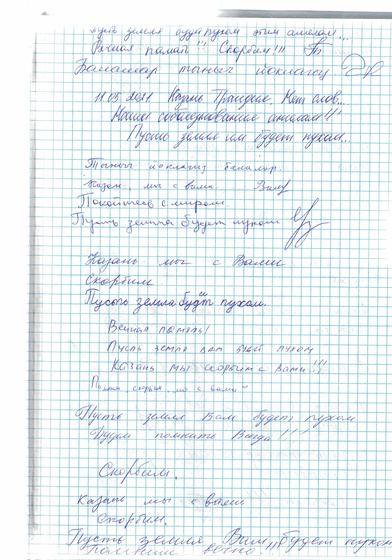 пусть земля будет пухом этим ангелам...
Вечная память!!! Скорбим!!!
Балалар тыныч йоклагыз
11.05.2021 Казань Трагедия. Нет слов...
Наши соболезнования ангелам!!!
Пусть земля им будет пухом..
Тыныч йоклагыз балалар.
Казань, мы с вами.
Покойтесь с миром.
Пусть земля будет пухом
Казань мы с Вами
Скорбим
Пусть земля будет пухом.
Вечная память!
Пусть земля вам будет пухом
Казань мы скорбим с вами!!!
Помним, скорбим, мы с вами
Пусть земля Вам будет пухом
Будем помнить Всегда!!!
Скорбим.
Казань мы с вами
Скорбим.
Пусть земля Вам будет пухом
Помним вечно